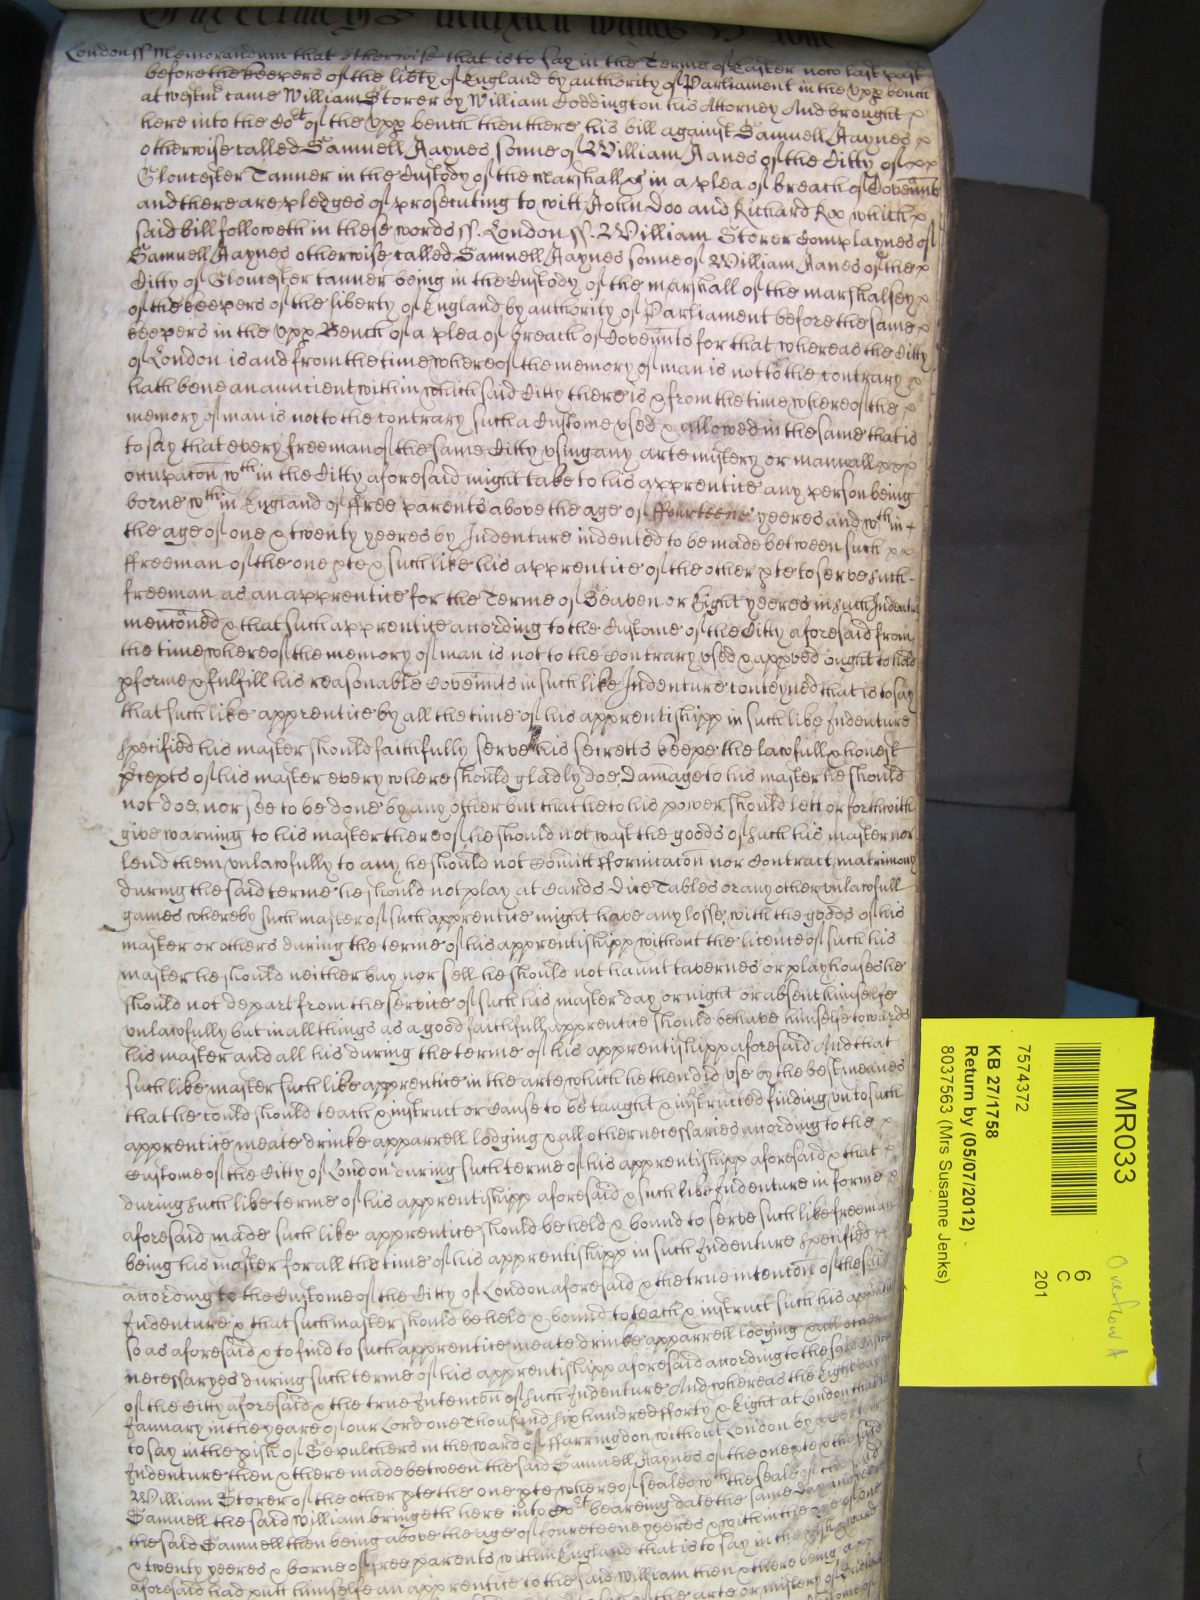 London ss Memorandum that otherwise that is to say in the Terme of Easter now last past
before the keepers of the lib̃ty of England by authority of Parliament in the Vpp̱ bench
at westm̃ came William Storer by William Coddington his Attorney And brought
here into the Co:rt of the Vpp̱ bench then there his bill against Samuell Haynes
otherwise called Samuell Haynes sonne of William Hanes of the Citty of
Gloucester Tanner in the Custody of the Marshall &c in a plea of breach of Coven̄nts
and there are pledges of prosecuting to witt John Doo and Richard Roo which
said bill followeth in these words ss. London ss. William Storer Complaynes of
Samuell Haynes otherwise called Samuell Haynes sonne of William Hanes of the
Citty of Gloucester tanner being in the Custody of the marshall of the marshalsey
of the keepers of the liberty of England by authority of Parliament before the same
keepers in the Vpp̱ Bench of a plea of breach of Coven̄nts for that whereas the Citty
of London is and from the time whereof the memory of man is not to the contrary
hath bene an auntient within which said Citty there is & from the time whereof the
memory of man is not to the contrary such a Custome vsed & allowed in the same that is
to say that every freeman of the same Citty vsing any arte mistery or manuall
occupac̄on wth in the Citty aforesaid might take to his apprentice any person being
borne wth in England of ffree parents above the age of ffourteene yeeres and wth in
the age of one & twenty yeeres by Indenture indented to be made betweene such
ffreeman of the one p̱te & such like his apprentice of the other p̱te to serve such
freeman as an apprentice for the Terme of Seaven or Eight yeeres in such Indenture
menc̄oned & that such apprentice according to the Custome of the Citty aforesaid from
the time whereof the memory of man is not to the Contrary vsed & app̱ved ought to hold
p̱forme & fulfill his reasonable Coven̄nts in such like Indenture conteyned that is to say
that such like apprentice by all the time of his apprentishipp in such like Indenture
specified his master should faithfully serve his secretts keepe the lawfull & honest
p̃cepts of his master every where should gladly doe, Damage to his master he should
not doe, nor see to be done by any other but that he to his power should lett or forthwith
give warning to his master thereof he should not wast the goods of such his master nor
lend them vnlawfully to any he should not Com̄itt fformicac̄on nor Contract matrimony
during the said terme he should not play at Cards Dice Tables or any other vnlawfull
games whereby such master of such apprentice might have any losse, with the goods of his
master or others during the terme of his apprentishipp without the licence of such his
master he should neither buy nor sell he should not haunt tavernes or playhouses he
should not depart from the service of such his master day or night or absent himselfe
vnlawfully but in all things as a good faithfull apprentice should behave himselfe towards
his master and all his during the terme of his apprentishipp aforesaid And that
such like master such like apprentice in the arte which he then did vse by the best meanes
that he could should teach & instruct or cause to be taught & instructed finding vnto such
apprentice meate drinke apparrell lodging & all other necessaries according to the
Custome of the Citty of London during such terme of his apprentishipp aforesaid & that
during such like terme of his apprentishipp aforesaid & such like Indenture in forme
aforesaid made such like apprentice should be held & bound to serve such like freeman
being his master for all the time of his apprentishipp in such Indenture specified
according to the Custome of the Citty of London aforesaid & the true intenc̄on of the said
Indenture & that such master should be held & bound to teach & instruct such his
so as aforesaid & to find to such apprentice meate drinke apparrell lodging & all other
necessaryes during such terme of his apprentishipp aforesaid according to the said Custome
of the Citty aforesaid & the true Intenc̄on of such Indenture And whereas the Eight
January in the yeare of our Lord one Thousand six hundred fforty & Eight at London that is
to say in the p̱ish of Sepulchers in the ward of ffarringdon without London by
Indenture then & there made betweene the said Samuell Haynes of the one p̱te & the said
William Storer of the other p̱te the one p̱te whereof sealed wth the seale of the said
Samuell the said William bringeth here into Co:rt beareing date the same day
the said Samuell then being above the age of foureteene yeeres & within the age of one
& twenty yeeres & borne of free parents within England that is to say in the p̱ish & ward
aforesaid had putt himselfe an apprentice to the said William then & there being
the arte or mistery of
MR033
7574372
KB 27/1758
Return by (05/07/2012)
8037563 (Mrs Susanne Jenks)
6
C
201